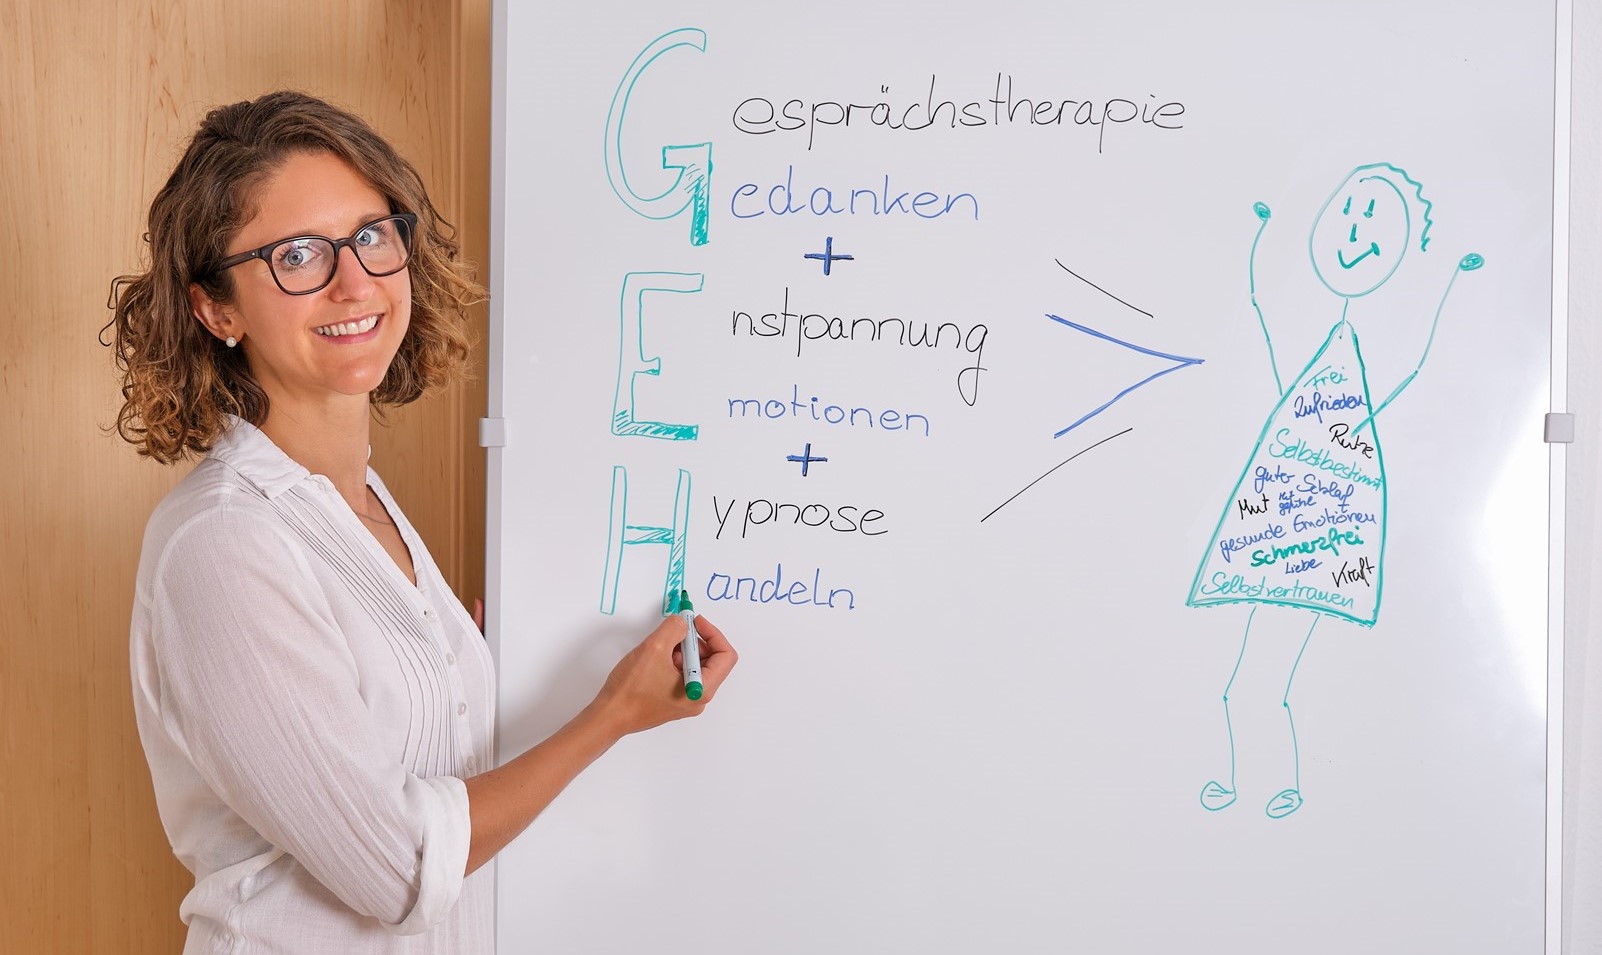 Gesprächstherapie
Gedanken
+
Enstpannung
Emotionen
+
Hypnose
Handeln
Frei
Zufrieden
Ruhe
Selbstbestimmt
guter Schlaf
Mut
+
gesunde Emotionen
schmerzfrei
Liebe
Kraft
Selbstvertrauen